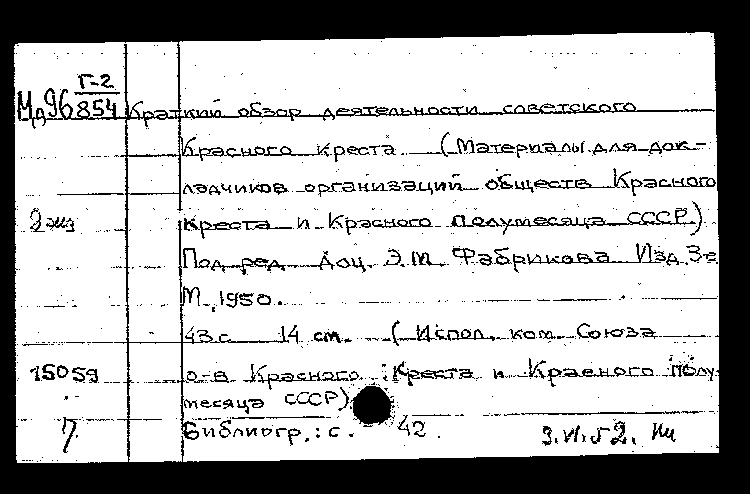 Г-2
Мд96 854 Краткий обзор деятельности советского
Красного креста (Материалы для док-
ладчиков организаций обществ Красного
2 экз Креста и Красного полумесяца СССР)
Под ред. Доц. Э.М. Фабрикова Изд. 3-е
М., 1950.
43 с. 14 см. (Испол. ком. Союза
15059 о-в Красного Креста и Красного Полу-
месяца СССР)
7. Библиогр.: с. 42. 3.VI.52.